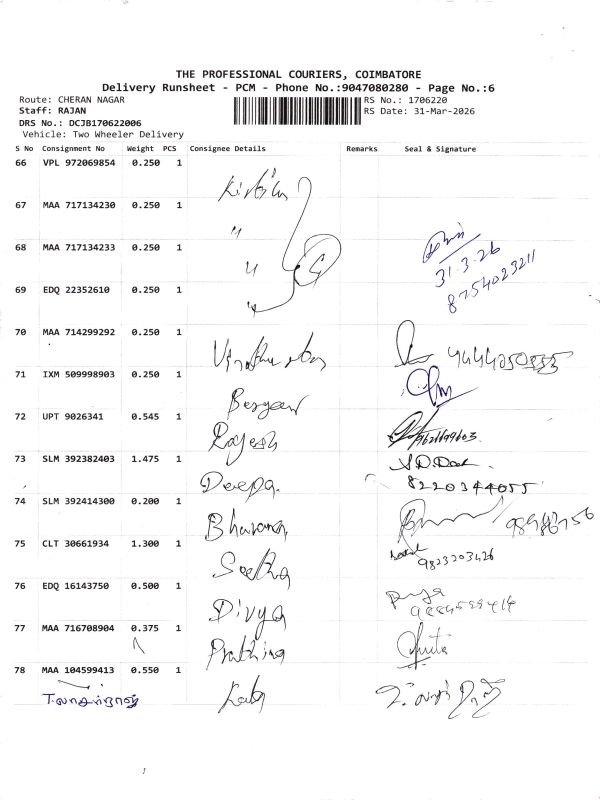 THE PROFESSIONAL COURIERS, COIMBATORE
Delivery Runsheet - PCM - Phone No.:9047080280 - Page No.:6
Route: CHERAN NAGAR RS No.: 1706220
Staff: RAJAN RS Date: 31-Mar-2026
DRS No.: DCJB170622006
Vehicle: Two Wheeler Delivery
S No Consignment No Weight PCS Consignee Details Remarks Seal & Signature
66 VPL 972069854 0.250 1
67 MAA 717134230 0.250 1
"
68 MAA 717134233 0.250 1
" 31.3.26
69 EDQ 22352610 0.250 1
" 8754023211
70 MAA 714299292 0.250 1
71 IXM 509998903 0.250 1
72 UPT 9026341 0.545 1
Rajesh
73 SLM 392382403 1.475 1
Deepa. 8220344055
74 SLM 392414300 0.200 1
Bharana
75 CLT 30661934 1.300 1
Seetha 9823203426
76 EDQ 16143750 0.500 1
Divya
77 MAA 716708904 0.375 1
78 MAA 104599413 0.550 1